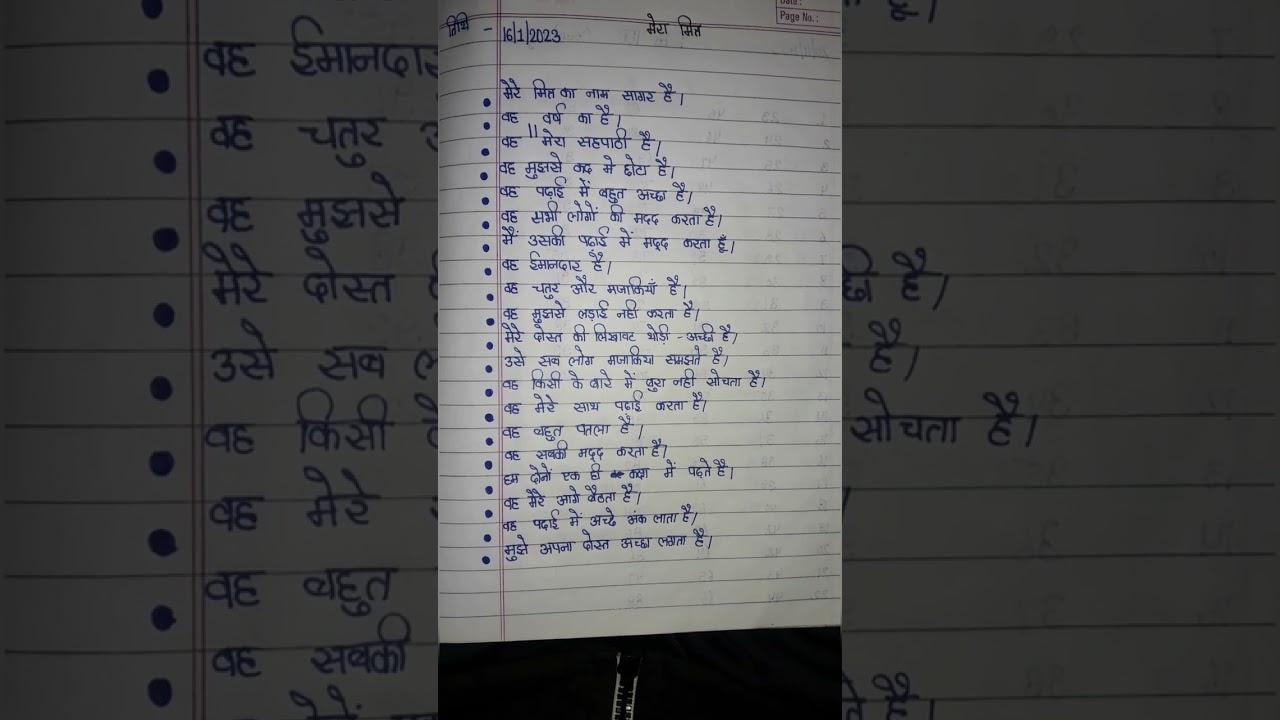 Date:
Page No.:
तिथि - 16/1/2023 मेरा मित्र
मेरे मित्र का नाम सागर है।
वह 11 वर्ष का है।
वह मेरा सहपाठी है।
वह मुझसे कद मे छोटा है।
वह पढ़ाई में बहुत अच्छा है।
वह सभी लोगों की मदद करता है।
मैं उसकी पढाई में मदद करता हूँ।
वह ईमानदार है।
वह चतुर और मजाकियाँ है।
वह मुझसे लड़ाई नही करता है।
मेरे दोस्त की लिखावट थोड़ी-अच्छी है।
उसे सब लोग मजाकिया समझते है।
वह किसी के बारे में बुरा नही सोचता है।
वह मेरे साथ पढाई करता है।
वह बहुत पतला है।
वह सबकी मदद करता है।
हम दोनों एक ही कक्षा में पढ़ते है।
वह मेरे आगे बैठता है।
वह पढाई में अच्छे अंक लाता है।
मुझे अपना दोस्त अच्छा लगता है।